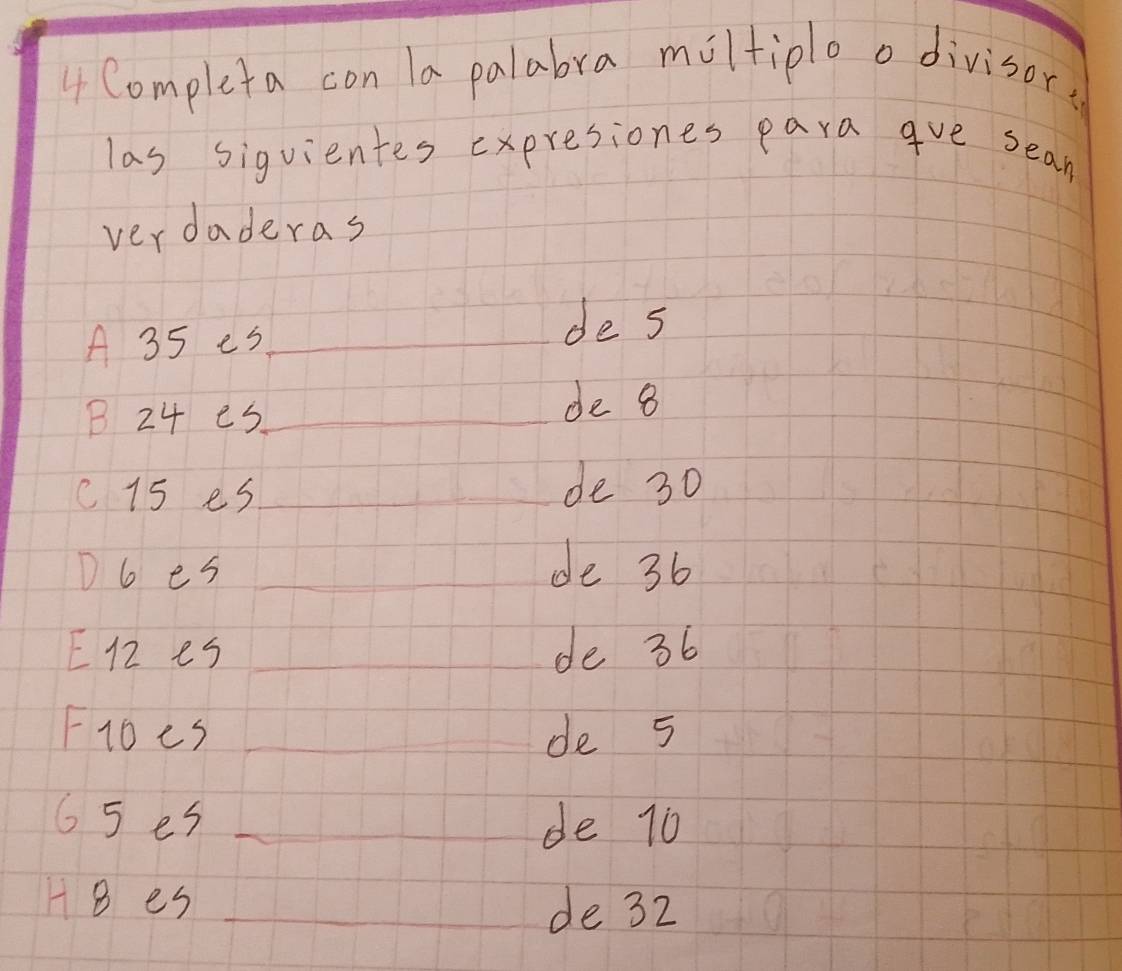 4 Completa con la palabra múltiplo o divisor en
las siguientes expresiones para que sean
verdaderas
A 35 es ________ de 5
B 24 es ________ de 8
C 15 es ________ de 30
D 6 es ________ de 36
E 12 es ________ de 36
F 10 es ________ de 5
G 5 es ________ de 10
H 8 es ________ de 32